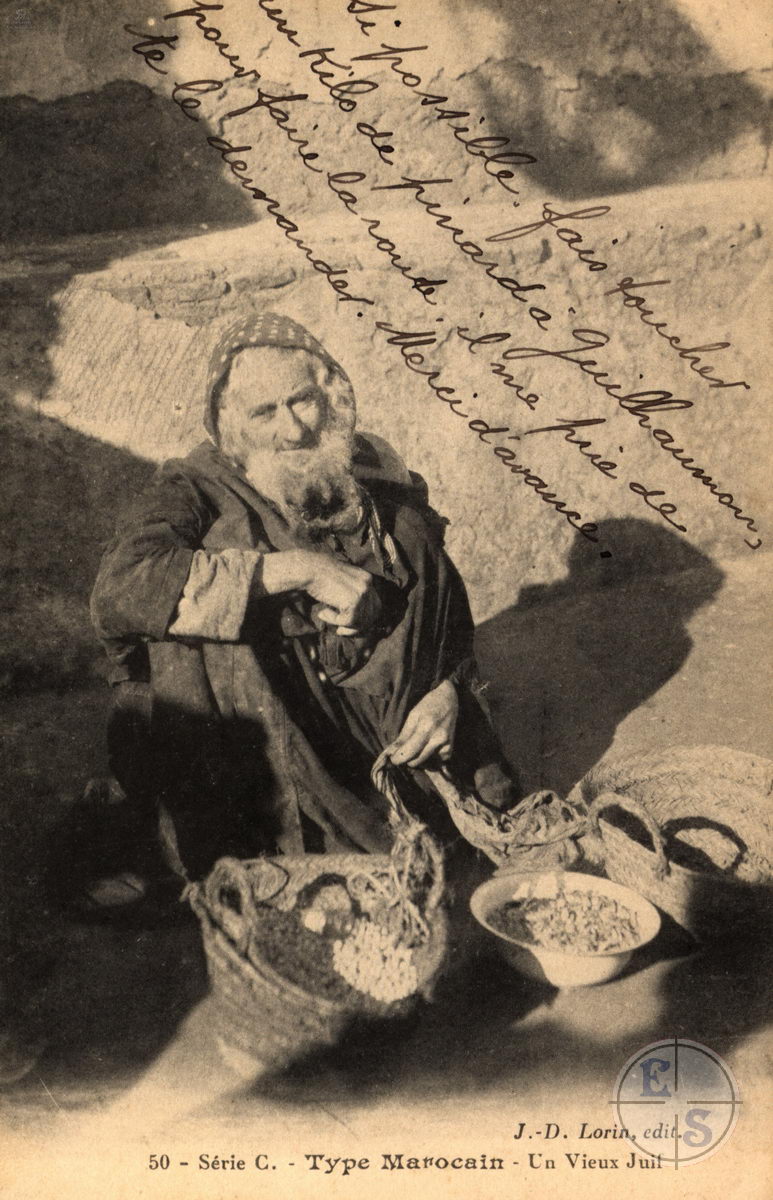 Si possible, fais toucher
un Kilo de pinard à Guilhaumon,
pour faire la route il me prie de
te le demander. Merci d'avance.
J.-D. Lorin, edit.
50 - Série C. - Type Marocain - Un Vieux Juif
E
S